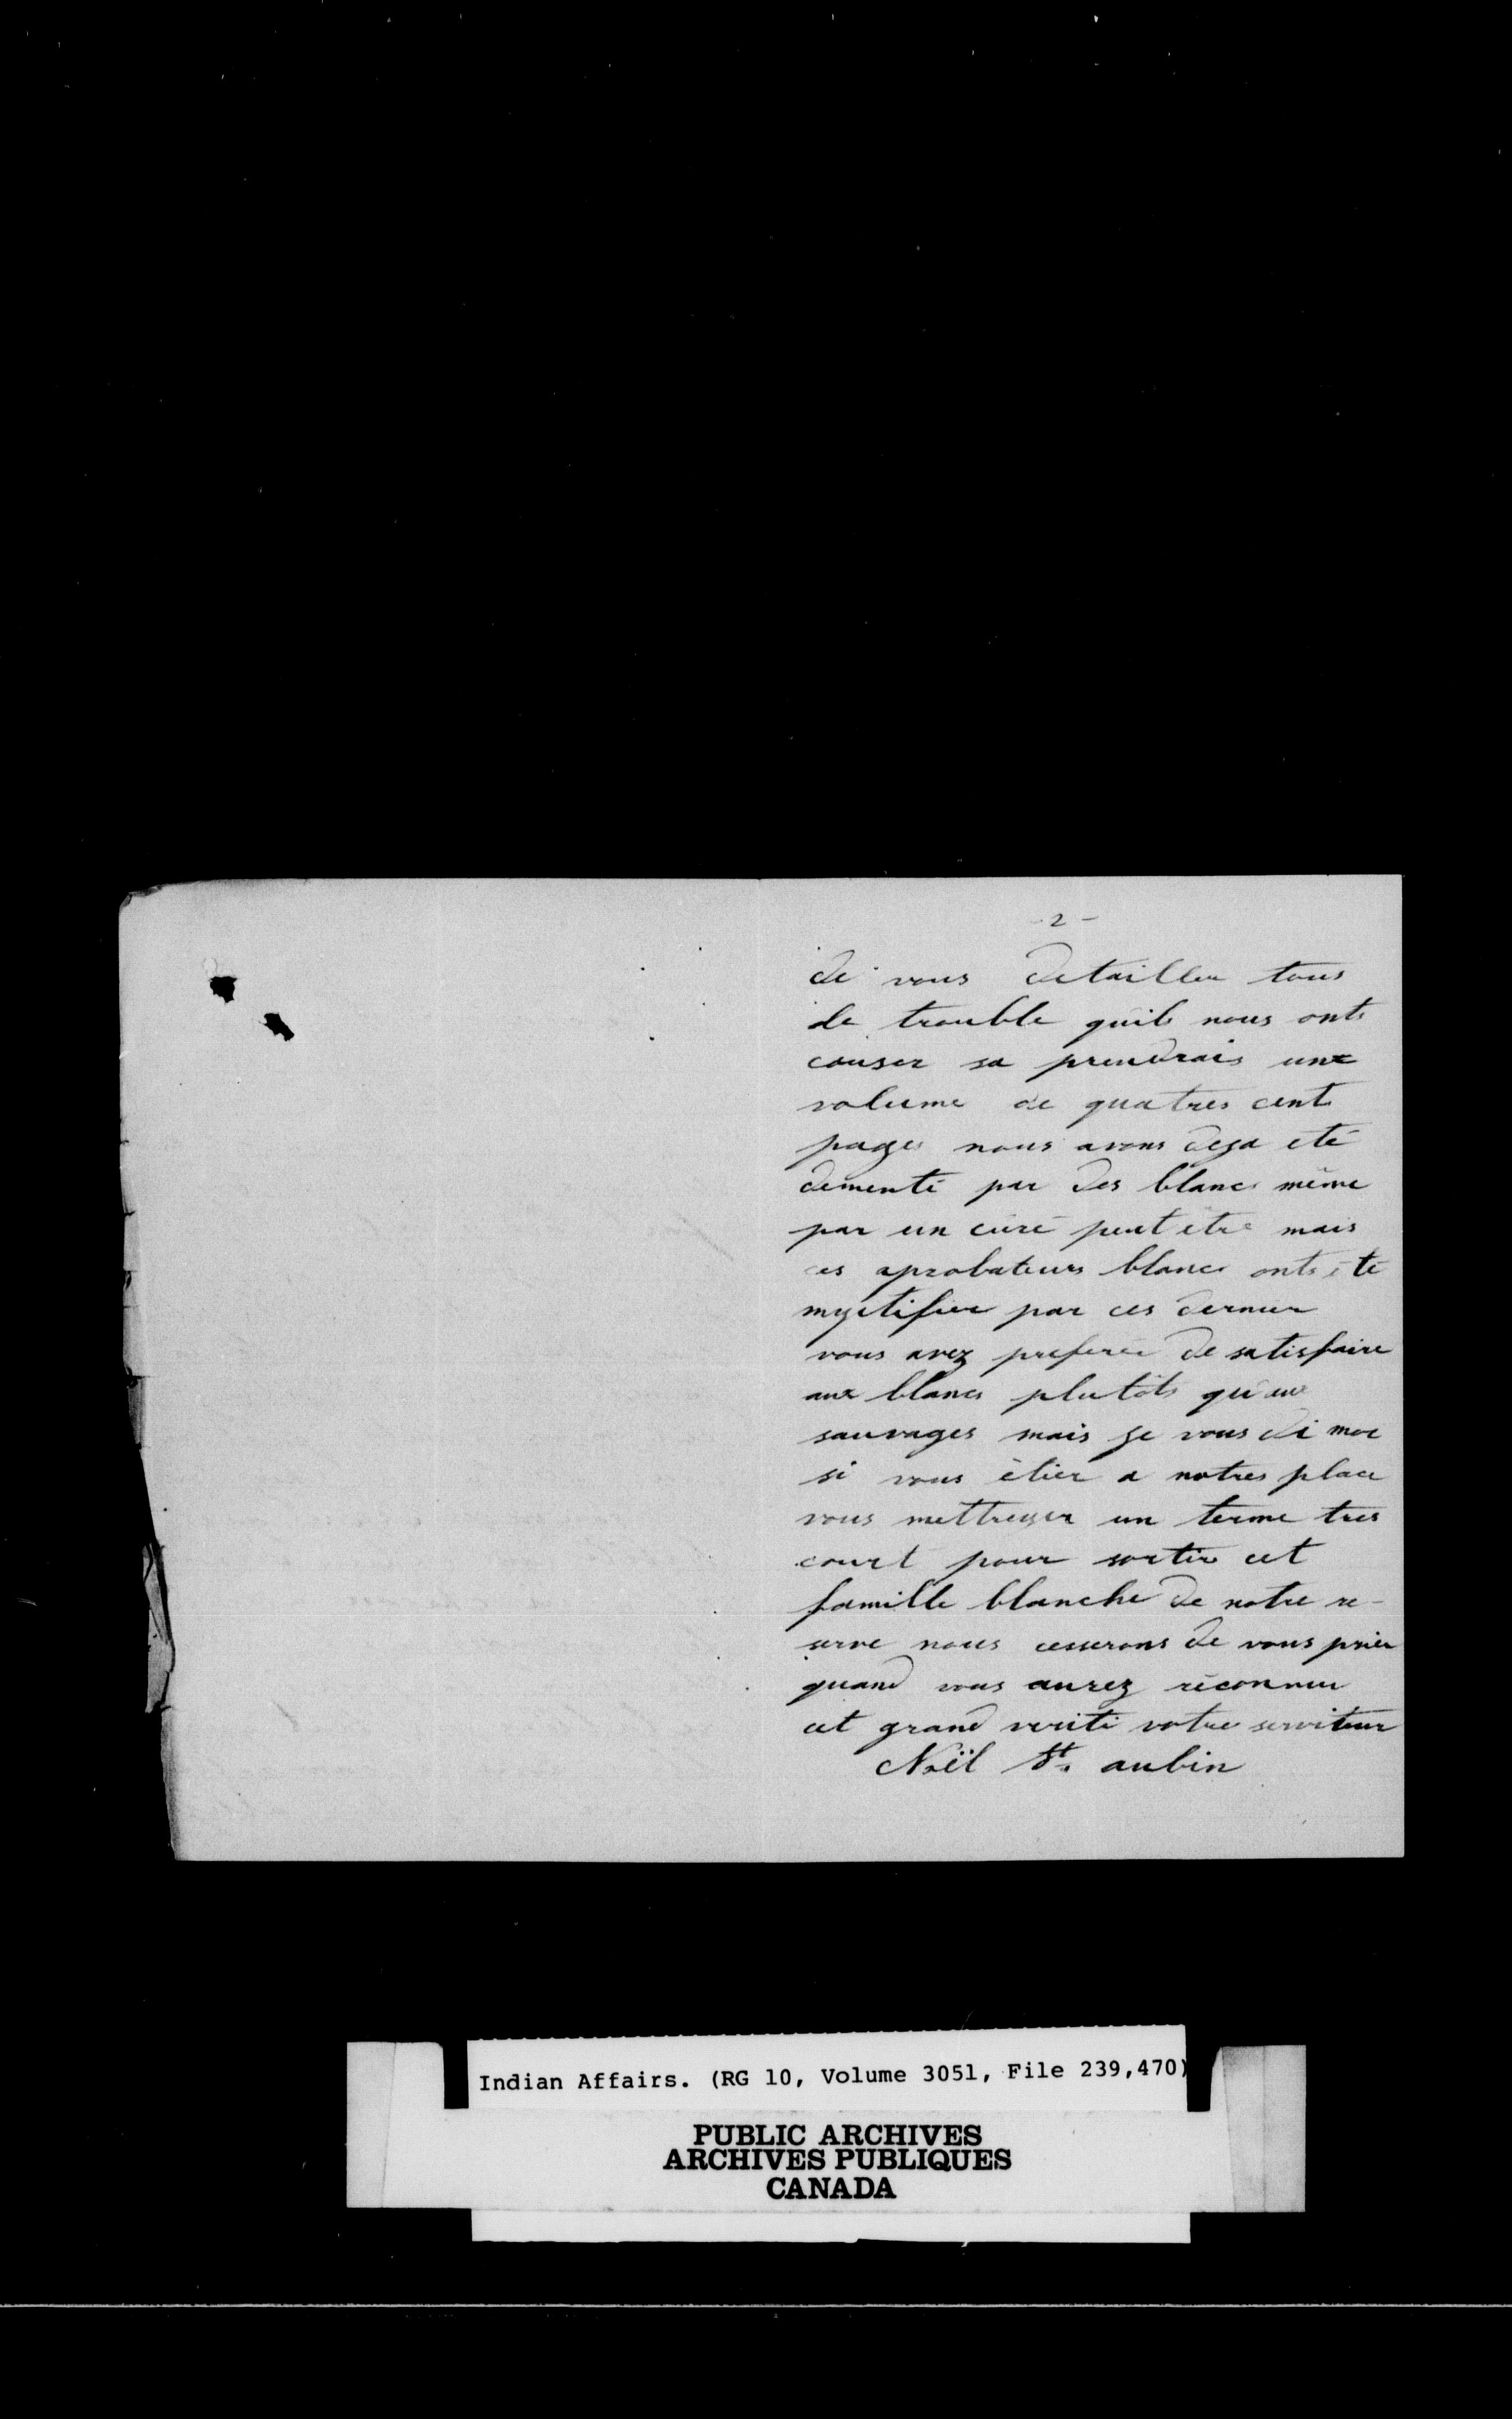 - 2 -
de vous detailler tous
le trouble quils nous onts
causer sa prendrais une
volume de quatres cent
pages nous avons deja été
dementi par des blancs même
par un curé peut etre mais
ces aprobateurs blancs onts été
mystifier par ces dernier
vous avez preferée de satisfaire
aux blancs plutôts qu'aux
sauvages mais je vous di moi
si vous étier a notres place
vous mettreyer un terme tres
court pour sortir cet
famille blanche de notre re-
serve nous cesserons de vous prier
quand vous aurez réconnue
cet grand verité votre serviteur
Noël St. aubin
Indian Affairs. (RG 10, Volume 3051, File 239,470)
PUBLIC ARCHIVES
ARCHIVES PUBLIQUES
CANADA